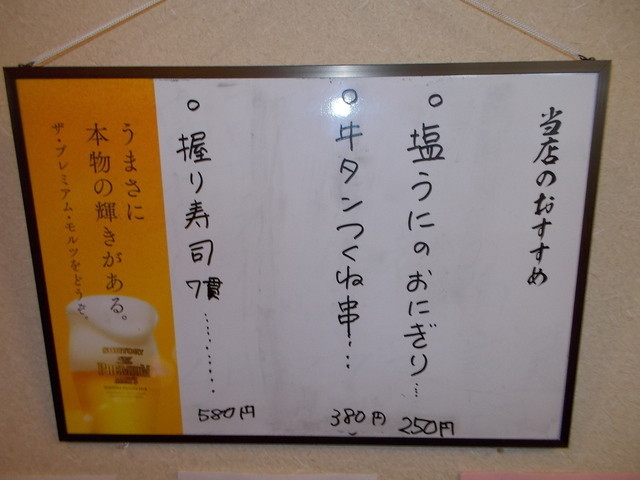 当店のおすすめ
○ 塩うにのおにぎり… 250円
○ 牛タンつくね串… 380円
○ 握り寿司 7貫………… 580円
うまさに
本物の輝きがある。
ザ・プレミアム・モルツをどうぞ。
SUNTORY
THE
PREMIUM
MALT'S